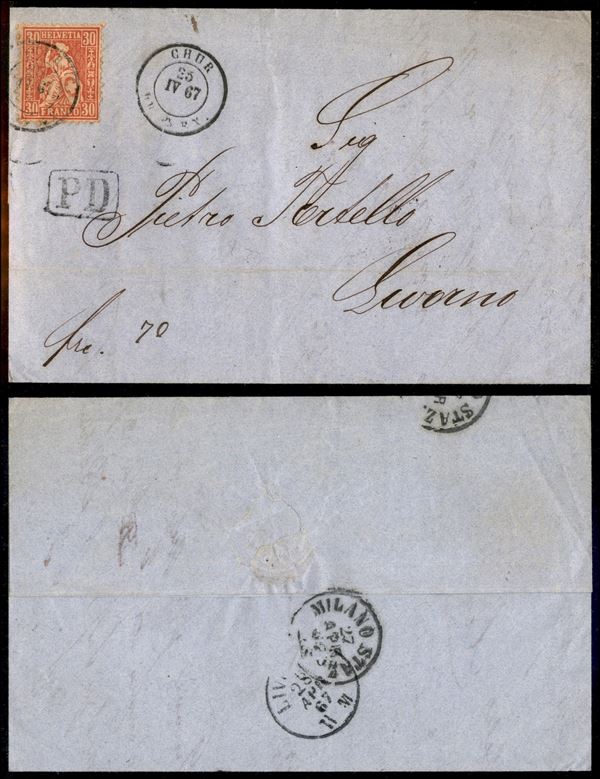 30 HELVETIA 30
30 FRANCO 30
CHUR
25
IV 67
PD
Sig
Pietro Tortello
Livorno
fro. 70
STAZ.
MILANO ST
27
APR
LIV
28
APR
67